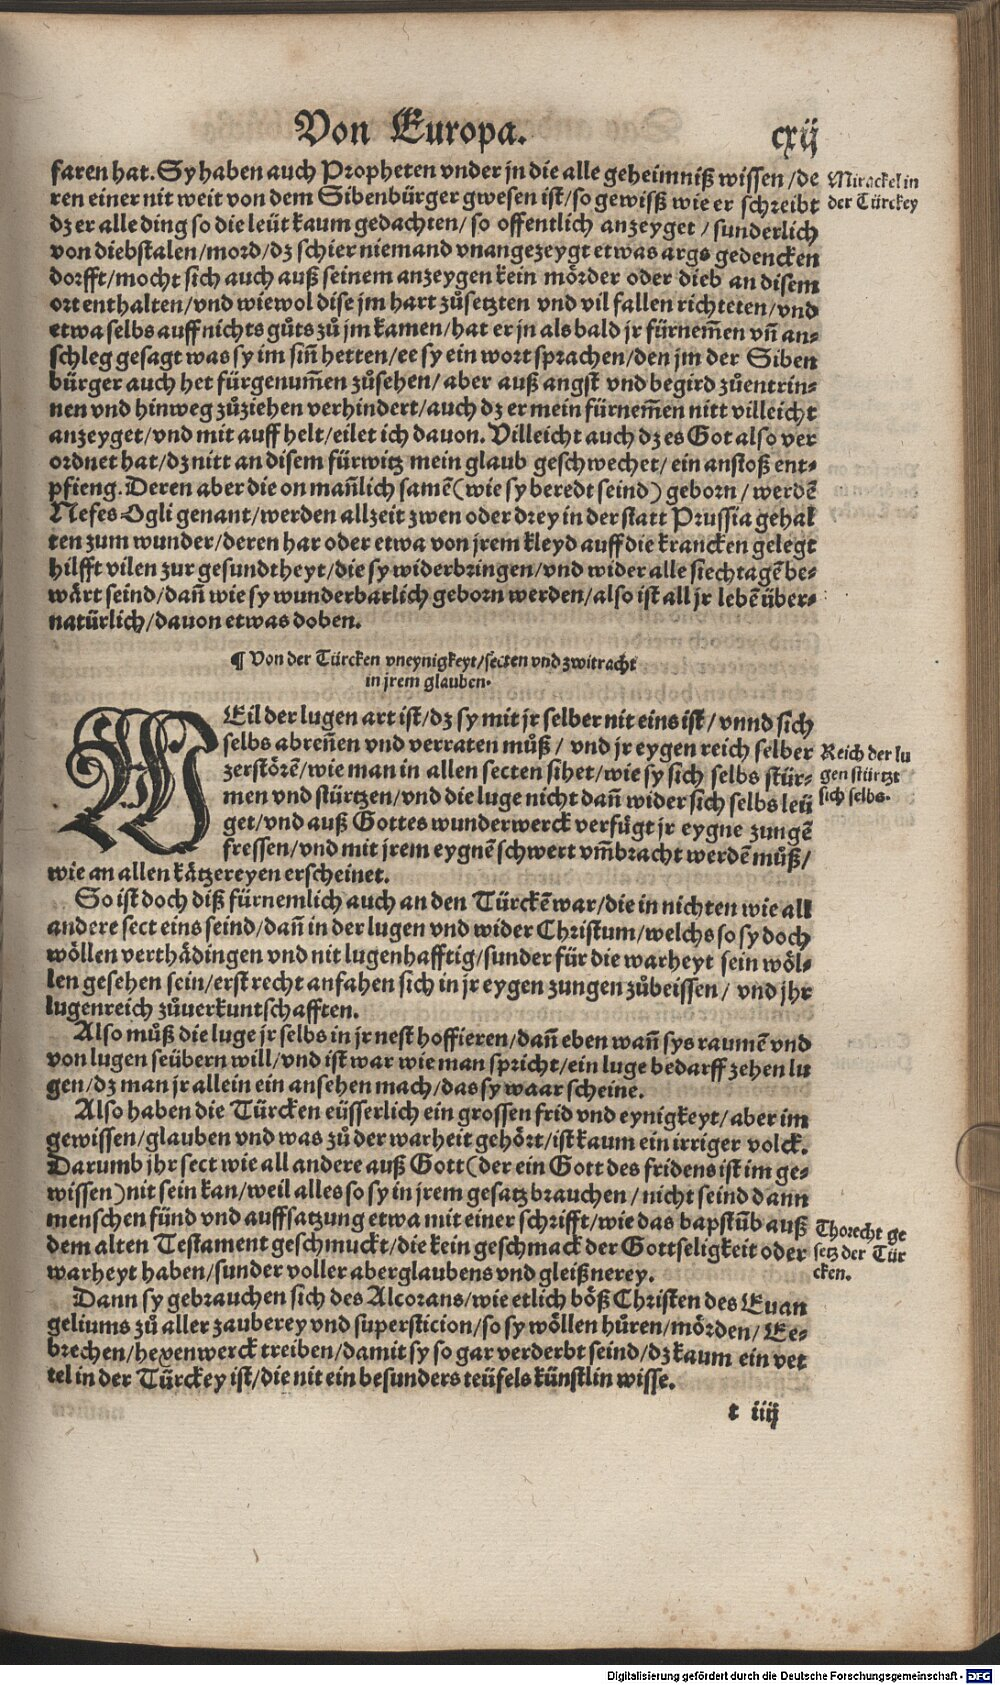 Von Europa. cxij
faren hat. Sy haben auch Propheten vnder jn die alle geheimniß wissen/de
ren einer nit weit von dem Sibenbürger gwesen ist/so gewisß wie er schreibt
dz er alle ding so die leüt kaum gedachten/so offentlich anzeyget/sunderlich
von diebstalen/mord/dz schier niemand vnangezeygt etwas args gedencken
dorfft/mocht sich auch auß seinem anzeygen kein mörder oder dieb an disem
ort enthalten/vnd wiewol dise jm hart zůsetzten vnd vil fallen richteten/vnd
etwa selbs auff nichts gůts zů jm kamen/hat er jn als bald jr fürnem̄en vn̄ an-
schleg gesagt was sy im sin̄ hetten/ee sy ein wort sprachen/den jm der Siben
bürger auch het fürgenum̄en zůsehen/aber auß angst vnd begird zůentrin-
nen vnd hinweg zůziehen verhindert/auch dz er mein fürnem̄en nitt villeicht
anzeyget/vnd mit auff helt/eilet ich dauon. Villeicht auch dz es Got also ver
ordnet hat/dz nitt an disem fürwitz mein glaub geschwechet/ein anstoß ent-
pfieng. Deren aber die on man̄lich samē (wie sy beredt seind) geborn/werdē
Nefes Ogli genant/werden allzeit zwen oder drey in der statt Prussia gehal
ten zum wunder/deren har oder etwa von jrem kleyd auff die krancken gelegt
hilfft vilen zur gesundtheyt/die sy widerbringen/vnd wider alle siechtagē be-
wärt seind/dan̄ wie sy wunderbarlich geborn werden/also ist all jr lebē über-
natürlich/dauon etwas doben.
Mirackel in
der Türckey
¶ Von der Türcken vneynigkeyt/secten vnd zwitracht
in jrem glauben.
WEil der lugen art ist/dz sy mit jr selber nit eins ist/vnnd sich
selbs abren̄en vnd verraten můß/vnd jr eygen reich selber
zerstörē/wie man in allen secten sihet/wie sy sich selbs stür-
men vnd stürtzen/vnd die luge nicht dan̄ wider sich selbs leü
get/vnd auß Gottes wunderwerck verfügt jr eygne zungē
fressen/vnd mit jrem eygnē schwert vm̄bracht werdē můß/
wie an allen kätzereyen erscheinet.
Reich der lu
gen stürtzt
sich selbs.
So ist doch diß fürnemlich auch an den Türckē war/die in nichten wie all
andere sect eins seind/dan̄ in der lugen vnd wider Christum/welchs so sy doch
wöllen verthädingen vnd nit lugenhafftig/sunder für die warheyt sein wöl-
len gesehen sein/erst recht anfahen sich in jr eygen zungen zůbeissen/vnd jhr
lugenreich zůuerkuntschafften.
Also můß die luge jr selbs in jr nest hoffieren/dan̄ eben wan̄ sys raumē vnd
von lugen seübern will/vnd ist war wie man spricht/ein luge bedarff zehen lu
gen/dz man jr allein ein ansehen mach/das sy waar scheine.
Also haben die Türcken eüsserlich ein grossen frid vnd eynigkeyt/aber im
gewissen/glauben vnd was zů der warheit gehört/ist kaum ein irriger volck.
Darumb jhr sect wie all andere auß Gott (der ein Gott des fridens ist im ge-
wissen) nit sein kan/weil alles so sy in jrem gesatz brauchen/nicht seind dann
menschen fünd vnd auffsatzung etwa mit einer schrifft/wie das bapstūb auß
dem alten Testament geschmuckt/die kein geschmack der Gottseligkeit oder
warheyt haben/sunder voller aberglaubens vnd gleißnerey.
Thorecht ge
setz der Tür
cken.
Dann sy gebrauchen sich des Alcorans/wie etlich böß Christen des Euan
geliums zů aller zauberey vnd supersticion/so sy wöllen hůren/mörden/Ee-
brechen/hexenwerck treiben/damit sy so gar verderbt seind/dz kaum ein vet
tel in der Türckey ist/die nit ein besunders teüfels künstlin wisse.
t iiij
Digitalisierung gefördert durch die Deutsche Forschungsgemeinschaft - DFG